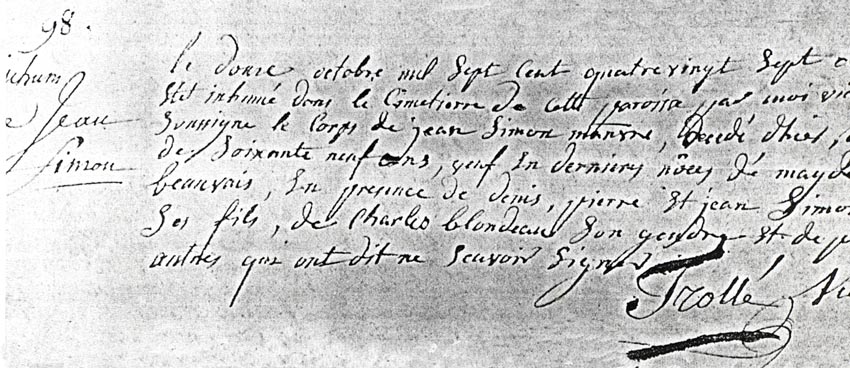 98.
ichum
Jean
Simon
le douze octobre mil Sept Cent quatre vingt Sept
Etét inhumé dans le Cemetierre de cette paroisse par moi vic
Soussigne le Corps de jean Simon manvre, Decedé d'hier,
de Soixante neuf ans, veuf En dernieres nôces de magde
beauvais, En presence de denis, pierre Et jean Simon
Ses fils, de Charles blondeau Son gendre Et de p
autres qui ont dit ne Scavoir Signer
Trollé Vic